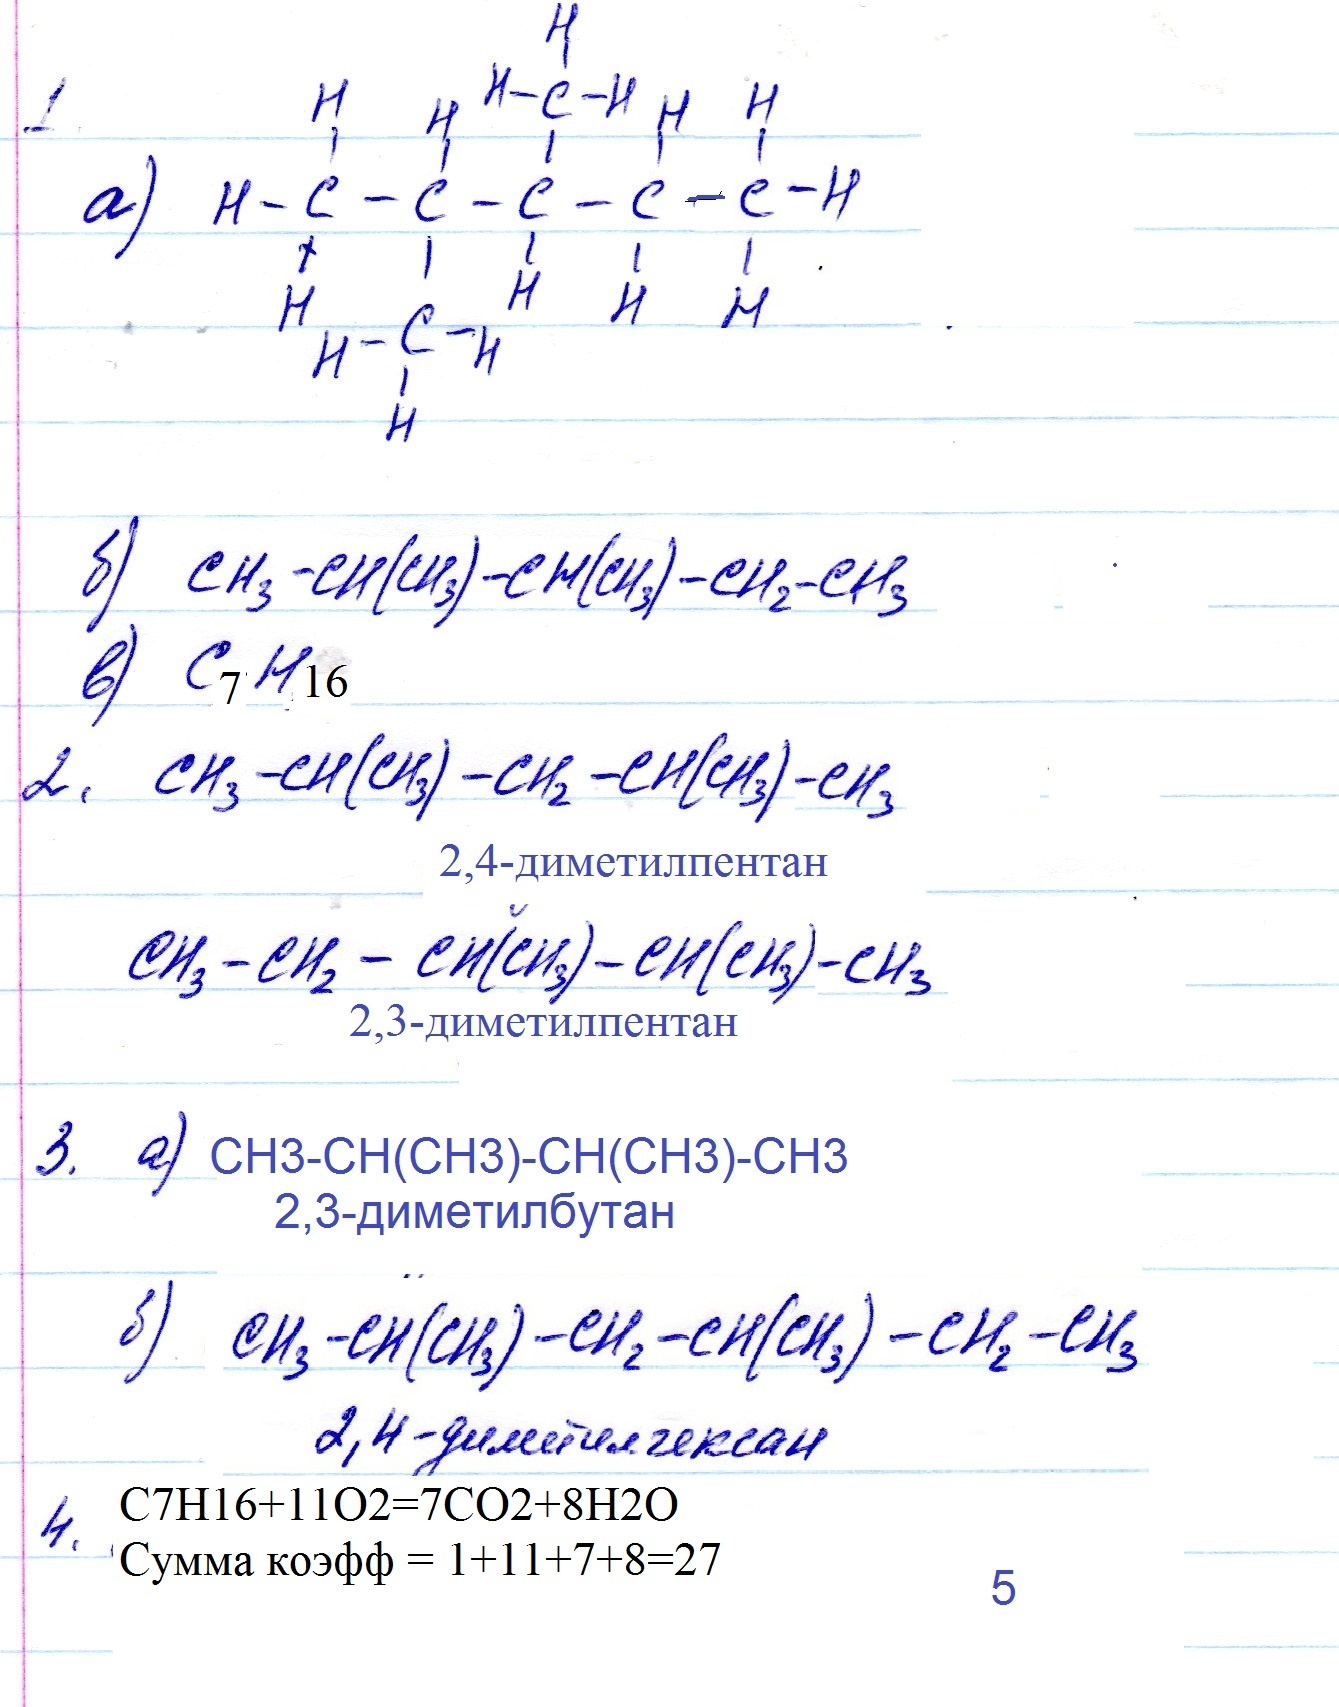 1
H
H H H-C-H H H
а) H-C-C-C-C-C-H
H H H H
H-C-H
H
б) CH3-CH(CH3)-CH(CH3)-CH2-CH3
в) C7H16
2. CH3-CH(CH3)-CH2-CH(CH3)-CH3
2,4-диметилпентан
CH3-CH2-CH(CH3)-CH(CH3)-CH3
2,3-диметилпентан
3. а) CH3-CH(CH3)-CH(CH3)-CH3
2,3-диметилбутан
б) CH3-CH(CH3)-CH2-CH(CH3)-CH2-CH3
2,4-диметилгексан
4. C7H16+11O2=7CO2+8H2O
Сумма коэфф = 1+11+7+8=27
5